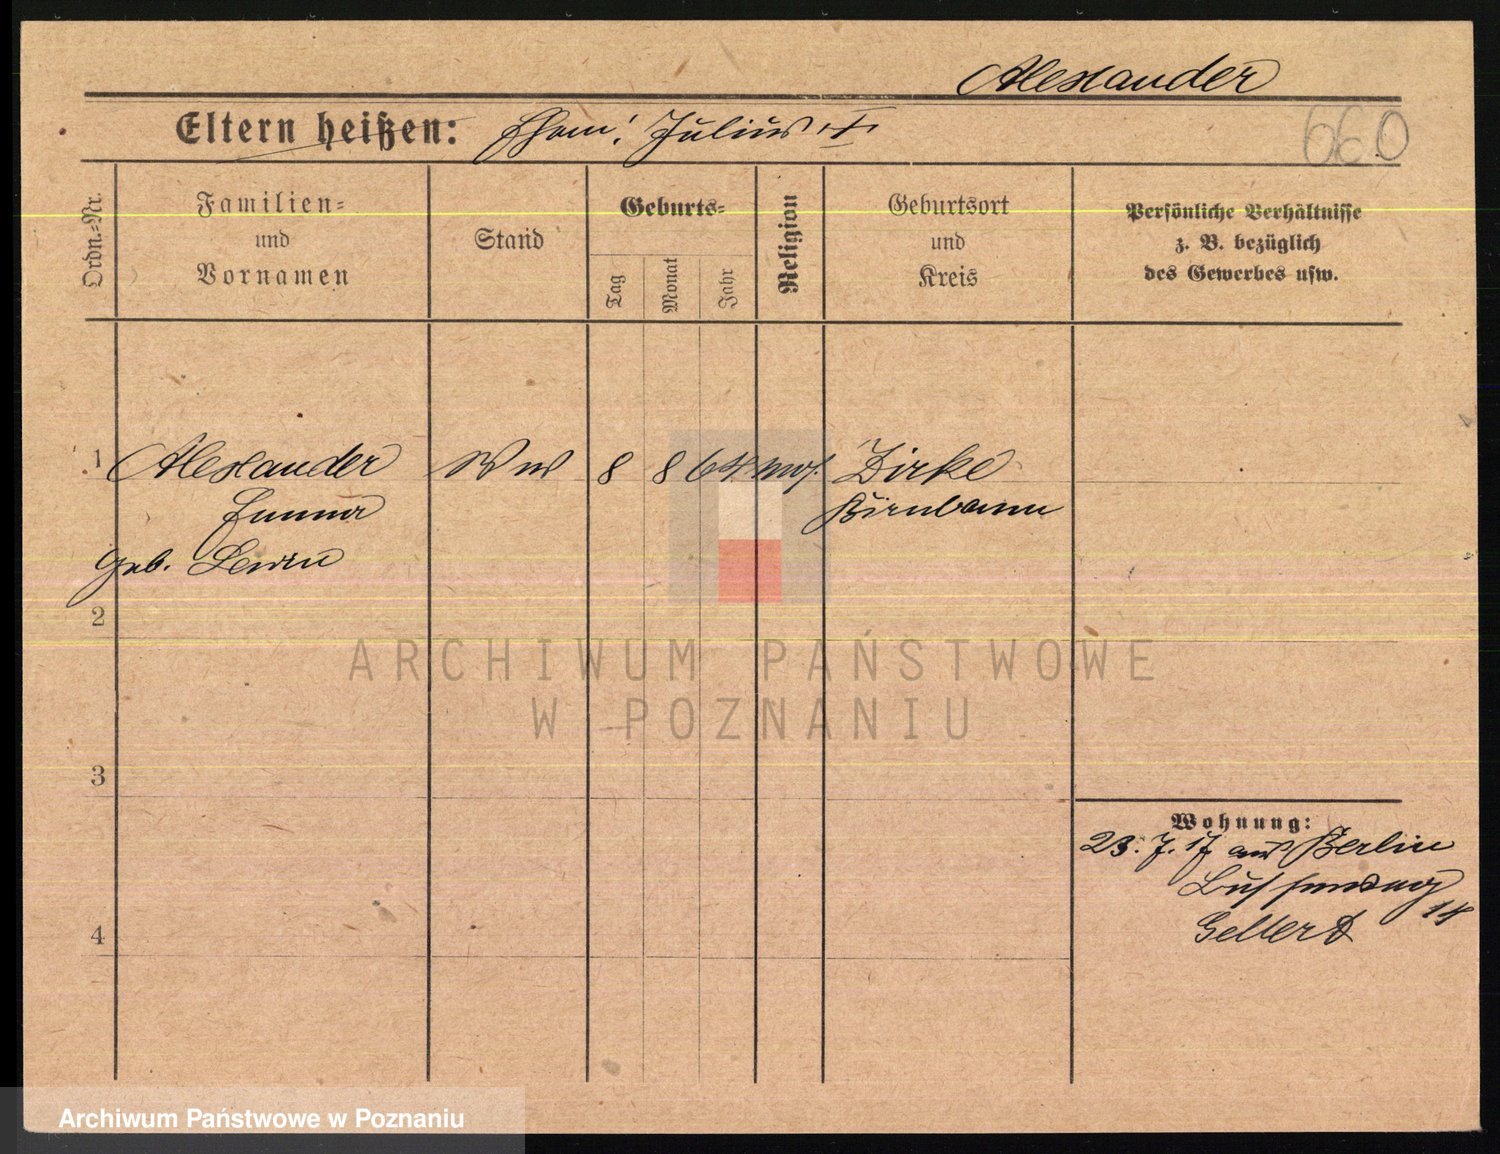 Alexander
Eltern heißen: Ehem: Julius +
660
Ordn.-Nr.
Familien-
und
Vornamen
Stand
Geburts-
Tag
Monat
Jahr
Religion
Geburtsort
und
Kreis
Persönliche Verhältnisse
z. B. bezüglich
des Gewerbes usw.
1 Alexander Ww 8 8 64 mos. Zirke
Emma Birnbaum
geb. Lewin
2
ARCHIWUM PAŃSTWOWE
W POZNANIU
3
Wohnung:
23. 7. 17 aus Berlin
14
Gellert
4
Archiwum Państwowe w Poznaniu